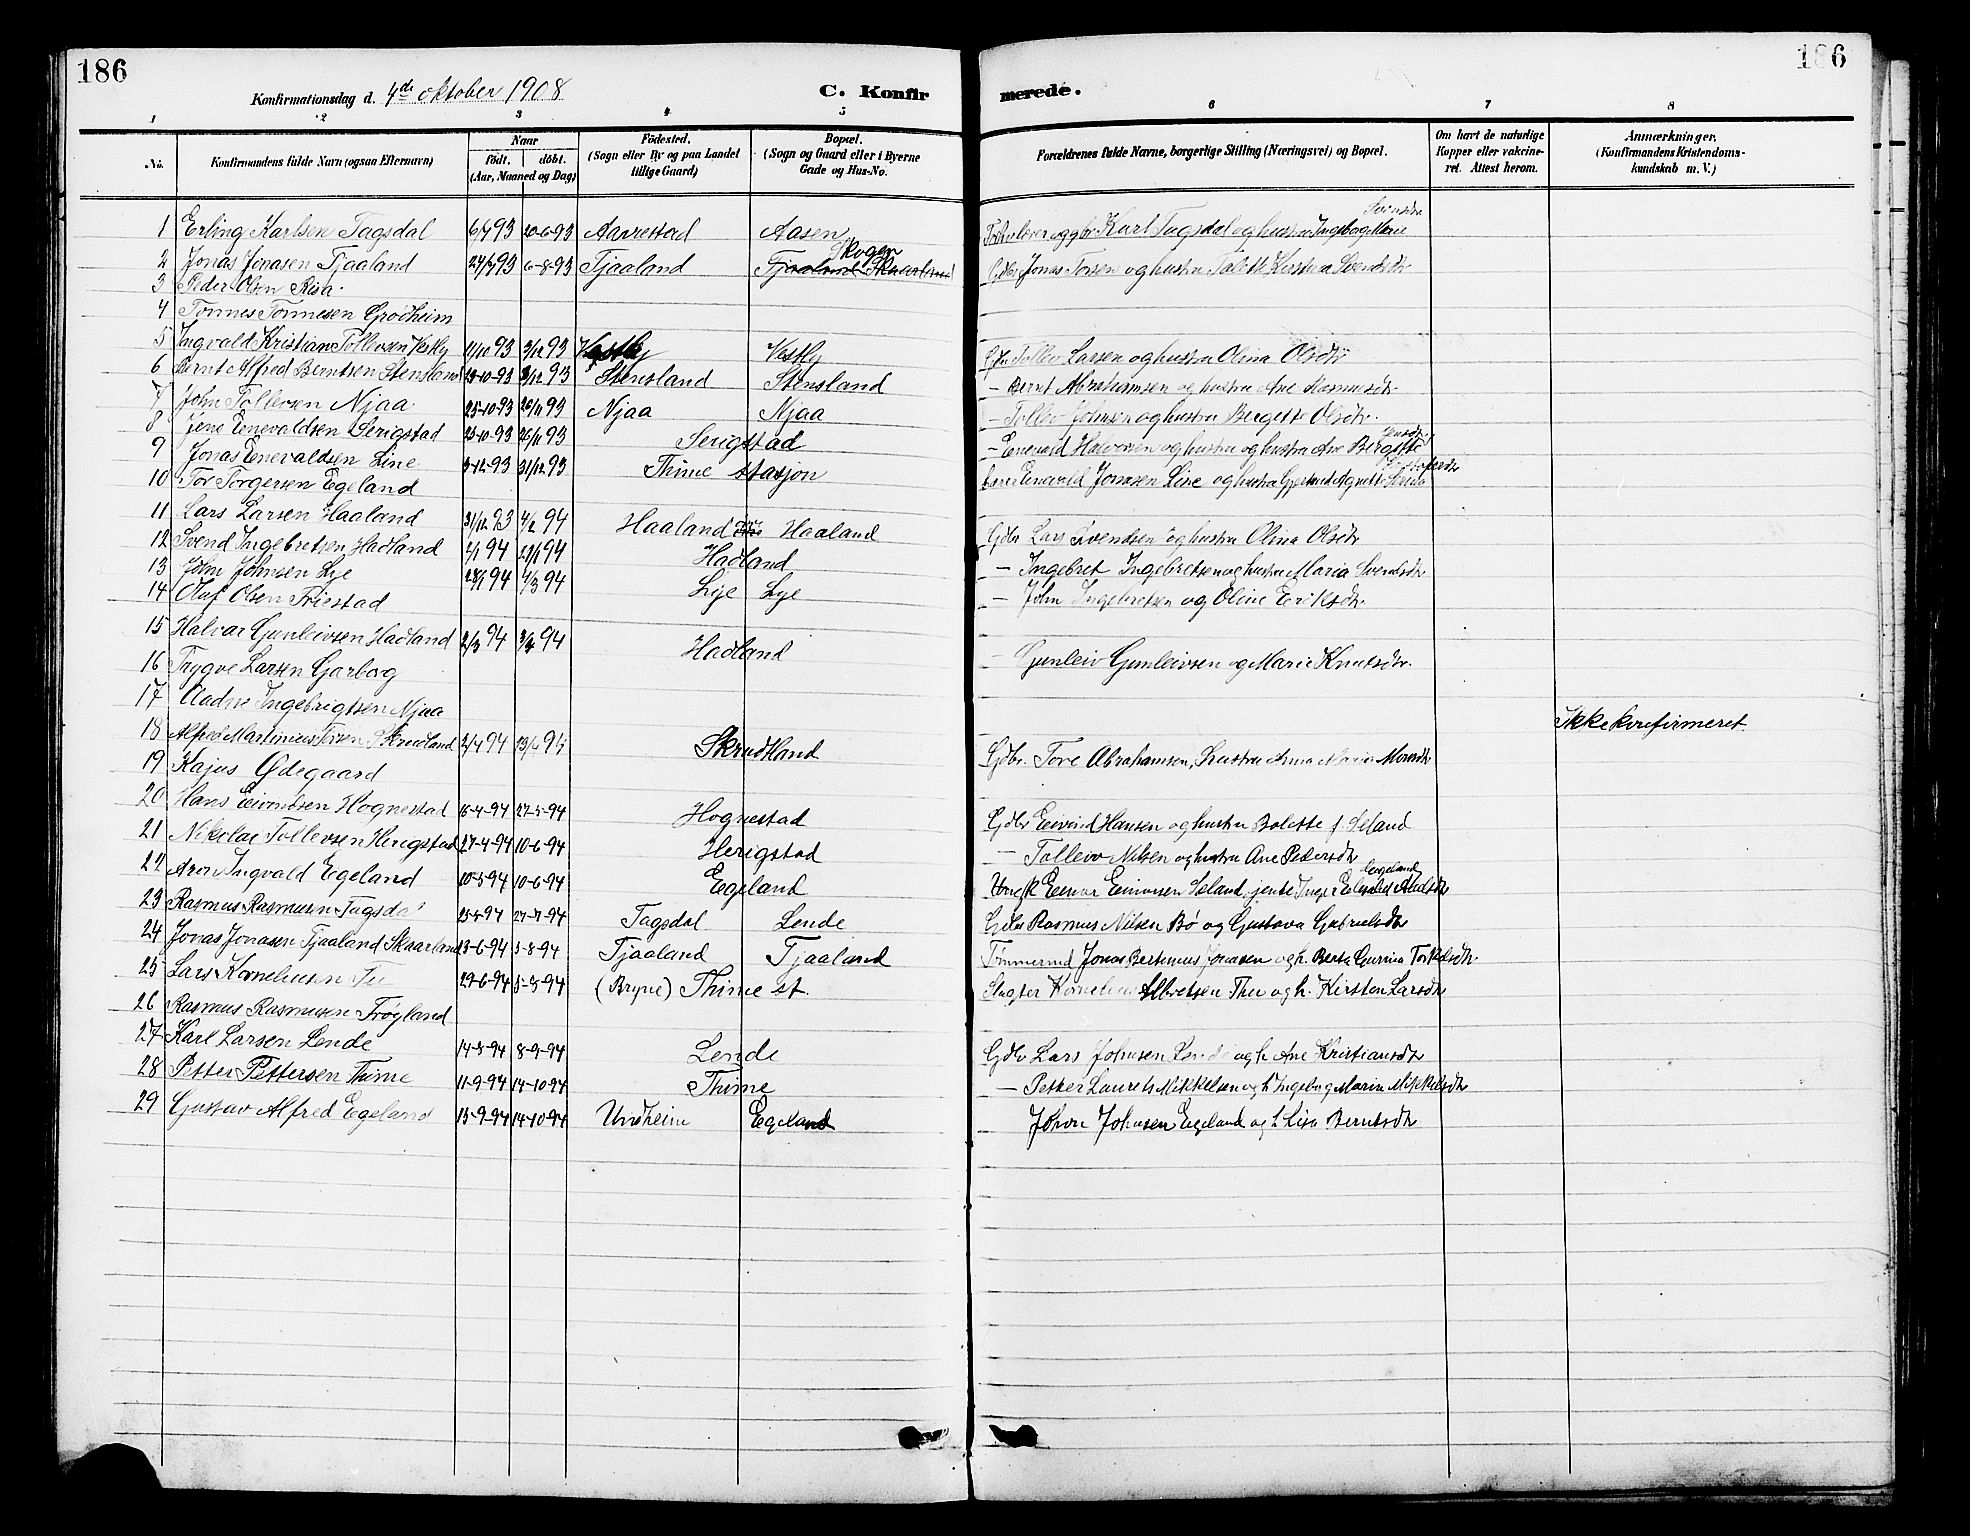 186
186
Konfirmationsdag d. 4de oktober 1908
C. Konfirmerede.
1 2 3 4 5 6 7 8
No. Konfirmandens fulde Navn (ogsaa Efternavn) Naar født. døbt. (Aar, Maaned og Dag) Födested. (Sogn eller By og paa Landet tillige Gaard) Bopæl. (Sogn og Gaard eller i Byerne Gade og Hus-No. Forældrenes fulde Navne, borgerlige Stilling (Næringsvei) og Bopæl. Om havt de naturlige Kopper eller vakcineret. Attest herom. Anmærkninger. (Konfirmandens Kristendomskundskab m. V.)
1 Erling Karlsen Tagsdal 6/7 93 20-6-93 Aavrestad Aasen Karl Tagsdal og hustru Ingeborg Marie Svendsdtr
2 Jonas Jonasen Tjaaland 24/7 93 6-8-93 Tjaaland Tjaaland Skaarland Skogen Gdbr Jonas Torsen og hustru Talette Kirstina Svendsdtr
3 Peder Olsen Risa
4 Tønnes Tønnesen Grødheim
5 Ingvald Kristian Tollevsen Vestly 11/10 93 3/12 93 Vestly Vestly Gbr Tollev Larsen og hustru Olina Olsdtr
6 Bernt Alfred Berntsen Stensland 23-10-93 3/12 93 Stensland Stensland - Bernt Abrahamsen og hustru Ane Rasmusdtr
7 John Tollevsen Njaa 25-10-93 26/11 93 Njaa Njaa - Tollev Johnsen og hustru Bergette Olsdtr.
8 Jene Enevaldsen Serigstad 25-10-93 26/11 93 Serigstad - Enevald Halvorsen og hustru og hustru Ane Bergitte Jensdtr
9 Jonas Enevaldsen Line 3-12-93 31/12 93 Thime stasjon Enevald Jonasen Line og hustru Gjertrud Agnette
10 Tor Torgersen Egeland
11 Lars Larsen Haaland 31/12 93 4/2 94 Haaland Haaland Gdbr Lars Svendsen og hustru Olina Olsdtr
12 Svend Ingebretsen Hadland 2/1 94 28/1 94 Hadland - Ingebret Ingebretsen og hustru Maria Svendsdtr
13 John Johnsen Lye 28/1 94 4/3 94 Lye Lye - John Ingebretsen og Oline Eriksdtr.
14 Oluf Olsen Friestad
15 Halvar Gunleivsen Hadland 2/3 94 3/4 94 Hadland - Gunleiv Gunleivsen og Marie Knutsdtr.
16 Trygve Larsen Garborg
17 Aadne Ingebrigtsen Njaa Ikke konfirmeret.
18 Alfred Martinius Torsen Skrudland 2/4 94 Skrudland Gdbr. Tore Abrahamsen, hustru Anna Maria
19 Kajus Ødegaard
20 Hans Eivindsen Hognestad 16-4-94 27-5-94 Hognestad Gdbr Eivind Hansen og hustru Bolette f. Seland
21 Nikolai Tollevsen Herigstad 27-4-94 10-6-94 Herigstad - Tollevv Nilsen og hustru Ane Pedersdtr
22 Aron Ingvald Egeland 10-5-94 10-6-94 Egeland Ungk Einar Einarsen Seland, jente Inger Egeland
23 Rasmus Rasmusen Tagsdal 25-5-94 27-7-94 Tagsdal Lende Gdbr Rasmus Nilsen Bø og Gustava Gabrielsdtr
24 Jonas Jonasen Tjaaland Skaarland 23-6-94 5-8-94 Tjaaland Tjaaland Tømmermd Jonas Bertinius Jonasen og h. Berta Gurina Torkelsdtr.
25 Lars Kornelius[en] Tu 29-6-94 5-8-94 (Bryne) Thime st. Slagter Kornelius Albretsen Thu og h. Kirsten Larsdtr
26 Rasmus Rasmusen Frøyland
27 Karl Larsen Lende 14-8-94 8-9-94 Lende Gdbr Lars Johnsen Lende og h. Ane Kristiansdtr
28 Petter Pettersen Thime 11-9-94 14-10-94 Thime - Petter Laurits Mikkelsen og h Ingeborg Marin Mikkelsdtr
29 Gustav Alfred Egeland 15-9-94 14-10-94 Undheim Egeland Johan Johnsen Egeland og h Lisa Berntsdtr